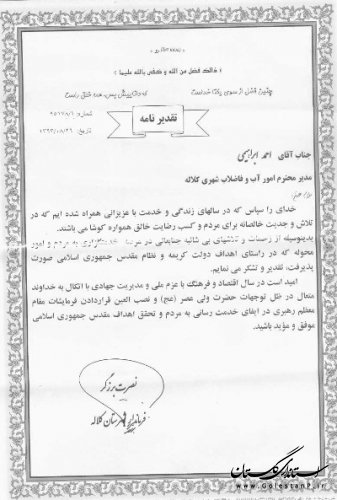 ﴿ ذالک فضل من الله و کفی بالله علیما ﴾
چنین فضل از سوی یکتا خداست
که دانائیش بس، همه خلق راست
شماره: ۹۵۱۷۷۸/۱
تقدیر نامه
تاریخ: ۱۳۹۳/۰۸/۲۹
جناب آقای احمد ابراهیمی
مدیر محترم امور آب و فاضلاب شهری کلاله
خدای را سپاس که در سالهای زندگی و خدمت با عزیزانی همراه شده ایم که در
تلاش و جدیت خالصانه برای مردم و کسب رضایت خالق همواره کوشا می باشند.
بدینوسیله از زحمات و تلاشهای بی شائبه جنابعالی در خدمتگزاری به مردم و امور
محوله که در راستای اهداف دولت کریمه و نظام مقدس جمهوری اسلامی صورت
پذیرفت، تقدیر و تشکر می نمایم.
امید است در سال اقتصاد و فرهنگ با عزم ملی و مدیریت جهادی با اتکال به خداوند
متعال در ظل توجهات حضرت ولی عصر (عج) و نصب العین قراردادن فرمایشات مقام
معظم رهبری در ایفای خدمت رسانی به مردم و تحقق اهداف مقدس جمهوری اسلامی
موفق و مؤید باشید.
نصرت برزگر
فرماندار شهرستان کلاله
استانداری گلستان
www.GolestanP.ir